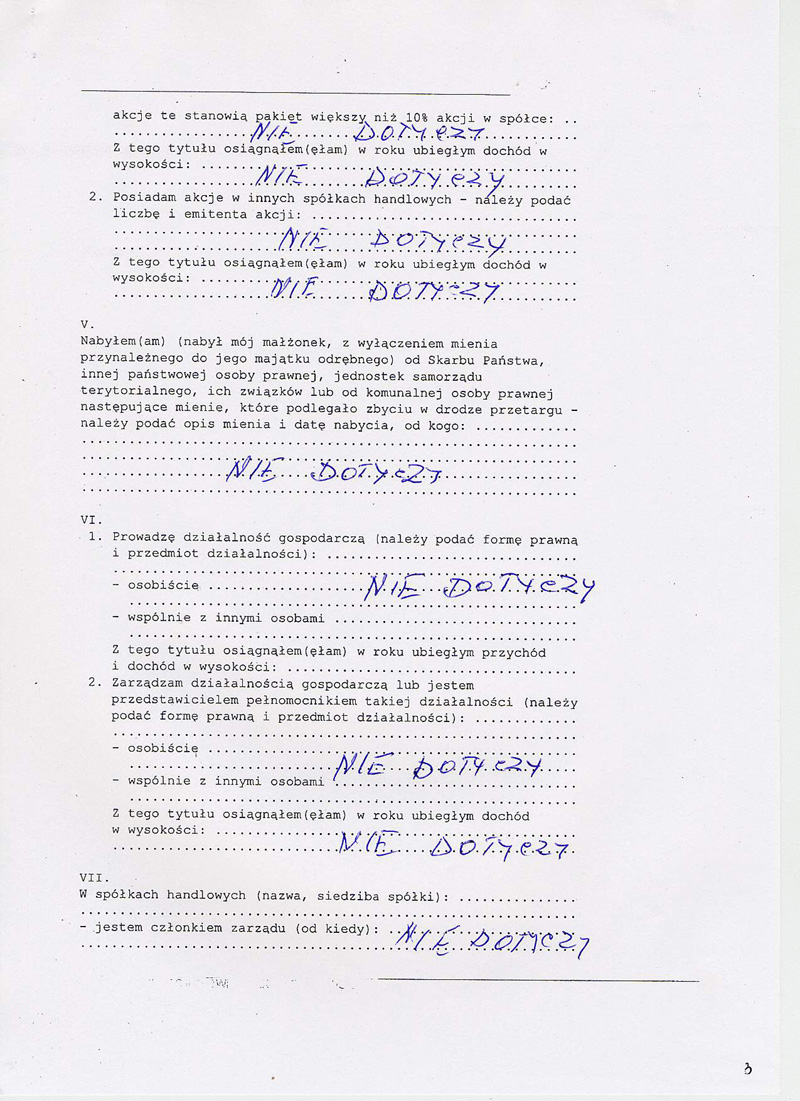 akcje te stanowią pakiet większy niż 10% akcji w spółce: ..
NIE DOTYCZY
Z tego tytułu osiągnąłem(ęłam) w roku ubiegłym dochód w
wysokości: ........
NIE DOTYCZY
2. Posiadam akcje w innych spółkach handlowych - należy podać
liczbę i emitenta akcji: ........
NIE DOTYCZY
Z tego tytułu osiągnąłem(ęłam) w roku ubiegłym dochód w
wysokości: ........
NIE DOTYCZY
V.
Nabyłem(am) (nabył mój małżonek, z wyłączeniem mienia
przynależnego do jego majątku odrębnego) od Skarbu Państwa,
innej państwowej osoby prawnej, jednostek samorządu
terytorialnego, ich związków lub od komunalnej osoby prawnej
następujące mienie, które podlegało zbyciu w drodze przetargu -
należy podać opis mienia i datę nabycia, od kogo: ........
NIE DOTYCZY
VI.
1. Prowadzę działalność gospodarczą (należy podać formę prawną
i przedmiot działalności): ........
- osobiście ........ NIE DOTYCZY
- wspólnie z innymi osobami ........
Z tego tytułu osiągnąłem(ęłam) w roku ubiegłym przychód
i dochód w wysokości: ........
2. Zarządzam działalnością gospodarczą lub jestem
przedstawicielem pełnomocnikiem takiej działalności (należy
podać formę prawną i przedmiot działalności): ........
- osobiście ........
NIE DOTYCZY
- wspólnie z innymi osobami ........
Z tego tytułu osiągnąłem(ęłam) w roku ubiegłym dochód
w wysokości: ........
NIE DOTYCZY
VII.
W spółkach handlowych (nazwa, siedziba spółki): ........
- jestem członkiem zarządu (od kiedy): ........
NIE DOTYCZY
3